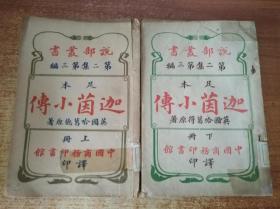 說部叢書
第二集第三編
足本
迦茵小傳
英國哈葛德原著
上冊
中國商務印書館
譯印
說部叢書
第二集第三編
足本
迦茵小傳
英國哈葛得原著
下冊
中國商務印書館
譯印